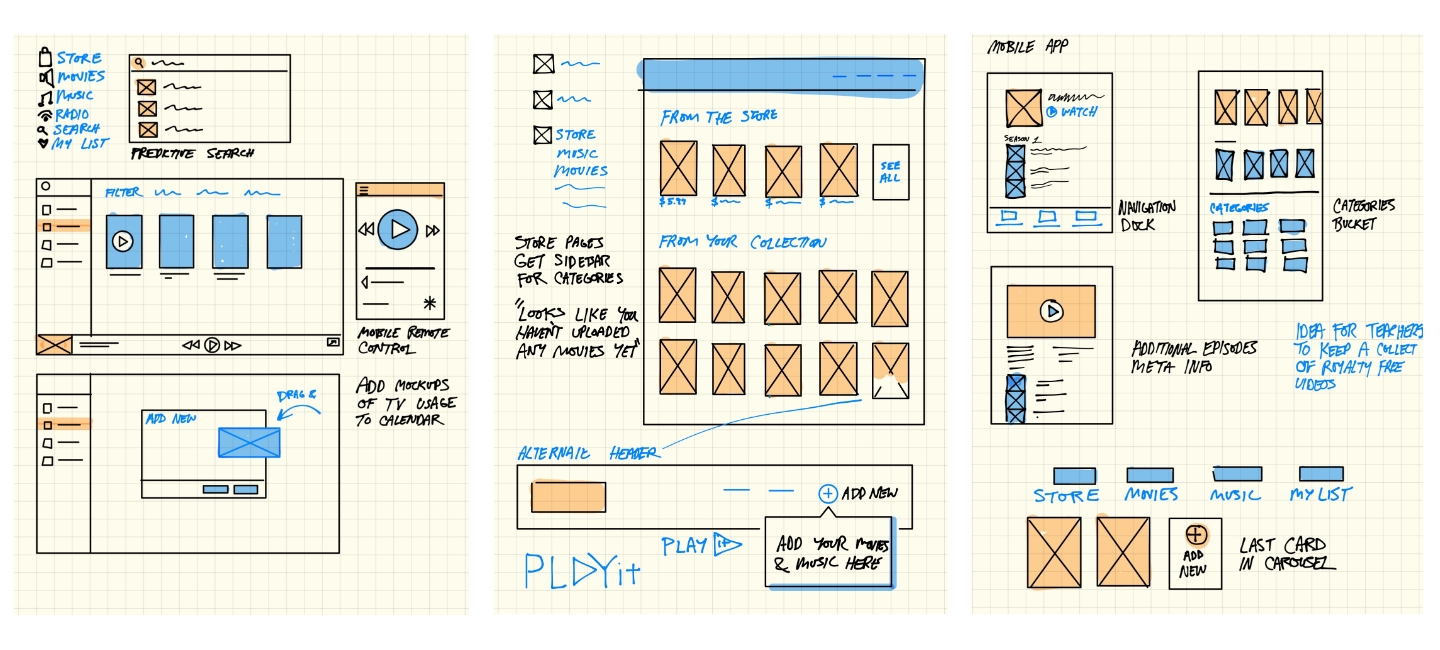 STORE
MOVIES
MUSIC
RADIO
SEARCH
MY LIST
PREDICTIVE SEARCH
FILTER
MOBILE REMOTE
CONTROL
ADD NEW
DRAG &
ADD MOCKUPS
OF TV USAGE
TO CALENDAR
STORE
MUSIC
MOVIES
STORE PAGES
GET SIDEBAR
FOR CATEGORIES
"LOOKS LIKE YOU
HAVEN'T UPLOADED
ANY MOVIES YET"
FROM THE STORE
$5.99
$
$
$
SEE
ALL
FROM YOUR COLLECTION
ALTERNATE HEADER
ADD NEW
ADD YOUR MOVIES
& MUSIC HERE
PLAY it
PLAYit
MOBILE APP
WATCH
SEASON 1
NAVIGATION
DOCK
CATEGORIES
CATEGORIES
BUCKET
ADDITIONAL EPISODES
META INFO
IDEA FOR TEACHERS
TO KEEP A COLLECT
OF ROYALTY FREE
VIDEOS
STORE
MOVIES
MUSIC
MY LIST
ADD
NEW
LAST CARD
IN CAROUSEL